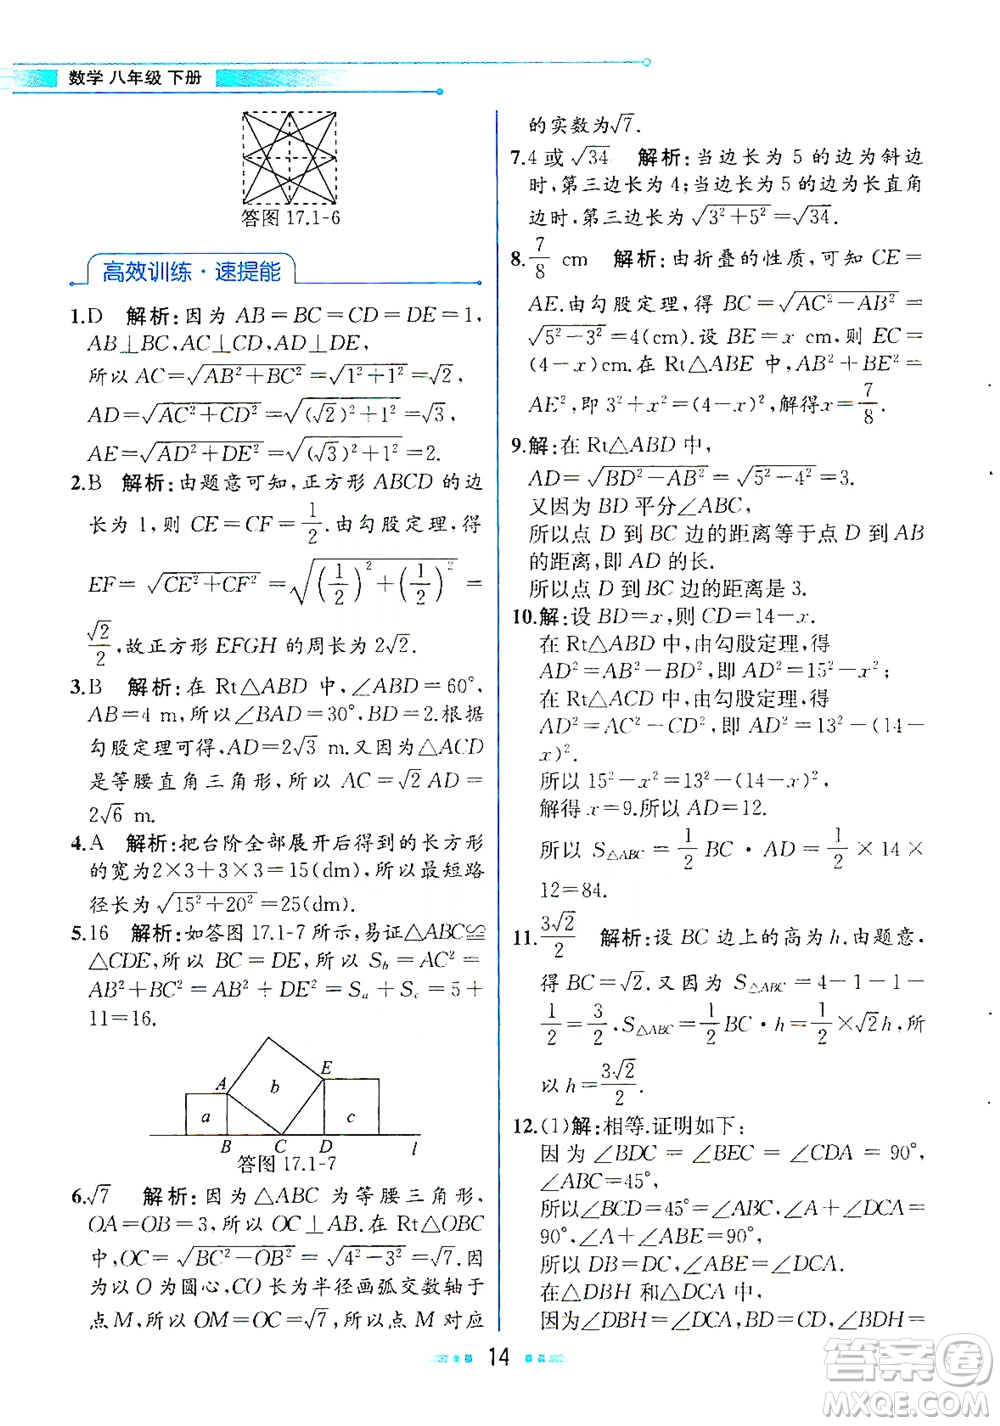 数学 八年级 下册
答图 17.1-6
高效训练·速提能
1.D 解析:因为 AB=BC=CD=DE=1,
AB⊥BC,AC⊥CD,AD⊥DE,
所以 AC=√(AB²+BC²)=√(1²+1²)=√2,
AD=√(AC²+CD²)=√((√2)²+1²)=√3,
AE=√(AD²+DE²)=√((√3)²+1²)=2.
2.B 解析:由题意可知,正方形 ABCD 的边
长为 1,则 CE=CF=1/2.由勾股定理,得
EF=√(CE²+CF²)=√((1/2)²+(1/2)²)=
√2/2,故正方形 EFGH 的周长为 2√2.
3.B 解析:在 Rt△ABD 中,∠ABD=60°,
AB=4 m,所以∠BAD=30°,BD=2.根据
勾股定理可得,AD=2√3 m.又因为△ACD
是等腰直角三角形,所以 AC=√2AD=
2√6 m.
4.A 解析:把台阶全部展开后得到的长方形
的宽为2×3+3×3=15(dm),所以最短路
径长为√(15²+20²)=25(dm).
5.16 解析:如答图 17.1-7 所示,易证△ABC≌
△CDE,所以 BC=DE,所以 S_b=AC²=
AB²+BC²=AB²+DE²=S_a+S_c=5+
11=16.
A E b a c B C D l
答图 17.1-7
6.√7 解析:因为△ABC 为等腰三角形,
OA=OB=3,所以 OC⊥AB.在 Rt△OBC
中,OC=√(BC²-OB²)=√(4²-3²)=√7.因
为以 O 为圆心,CO 长为半径画弧交数轴于
点 M,所以 OM=OC=√7,所以点 M 对应
的实数为√7.
7.4 或√34 解析:当边长为 5 的边为斜边
时,第三边长为 4;当边长为 5 的边为长直角
边时,第三边长为√(3²+5²)=√34.
8.7/8 cm 解析:由折叠的性质,可知 CE=
AE.由勾股定理,得 BC=√(AC²-AB²)=
√(5²-3²)=4(cm).设 BE=x cm,则 EC=
(4-x)cm.在 Rt△ABE 中,AB²+BE²=
AE²,即 3²+x²=(4-x)²,解得x=7/8.
9.解:在 Rt△ABD 中,
AD=√(BD²-AB²)=√(5²-4²)=3.
又因为 BD 平分∠ABC,
所以点 D 到 BC 边的距离等于点 D 到 AB
的距离,即 AD 的长.
所以点 D 到 BC 边的距离是 3.
10.解:设 BD=x,则 CD=14-x.
在 Rt△ABD 中,由勾股定理,得
AD²=AB²-BD²,即 AD²=15²-x²;
在 Rt△ACD 中,由勾股定理,得
AD²=AC²-CD²,即 AD²=13²-(14-
x)².
所以 15²-x²=13²-(14-x)².
解得 x=9.所以 AD=12.
所以 S△ABC=1/2 BC·AD=1/2×14×
12=84.
11.3√2/2 解析:设 BC 边上的高为 h.由题意,
得 BC=√2.又因为 S△ABC=4-1-1-
1/2=3/2,S△ABC=1/2 BC·h=1/2×√2h,所
以 h=3√2/2.
12.(1)解:相等.证明如下:
因为∠BDC=∠BEC=∠CDA=90°,
∠ABC=45°,
所以∠BCD=45°=∠ABC,∠A+∠DCA=
90°,∠A+∠ABE=90°,
所以 DB=DC,∠ABE=∠DCA.
在△DBH 和△DCA 中,
因为∠DBH=∠DCA,BD=CD,∠BDH=
14
答案圈
MXQE.COM